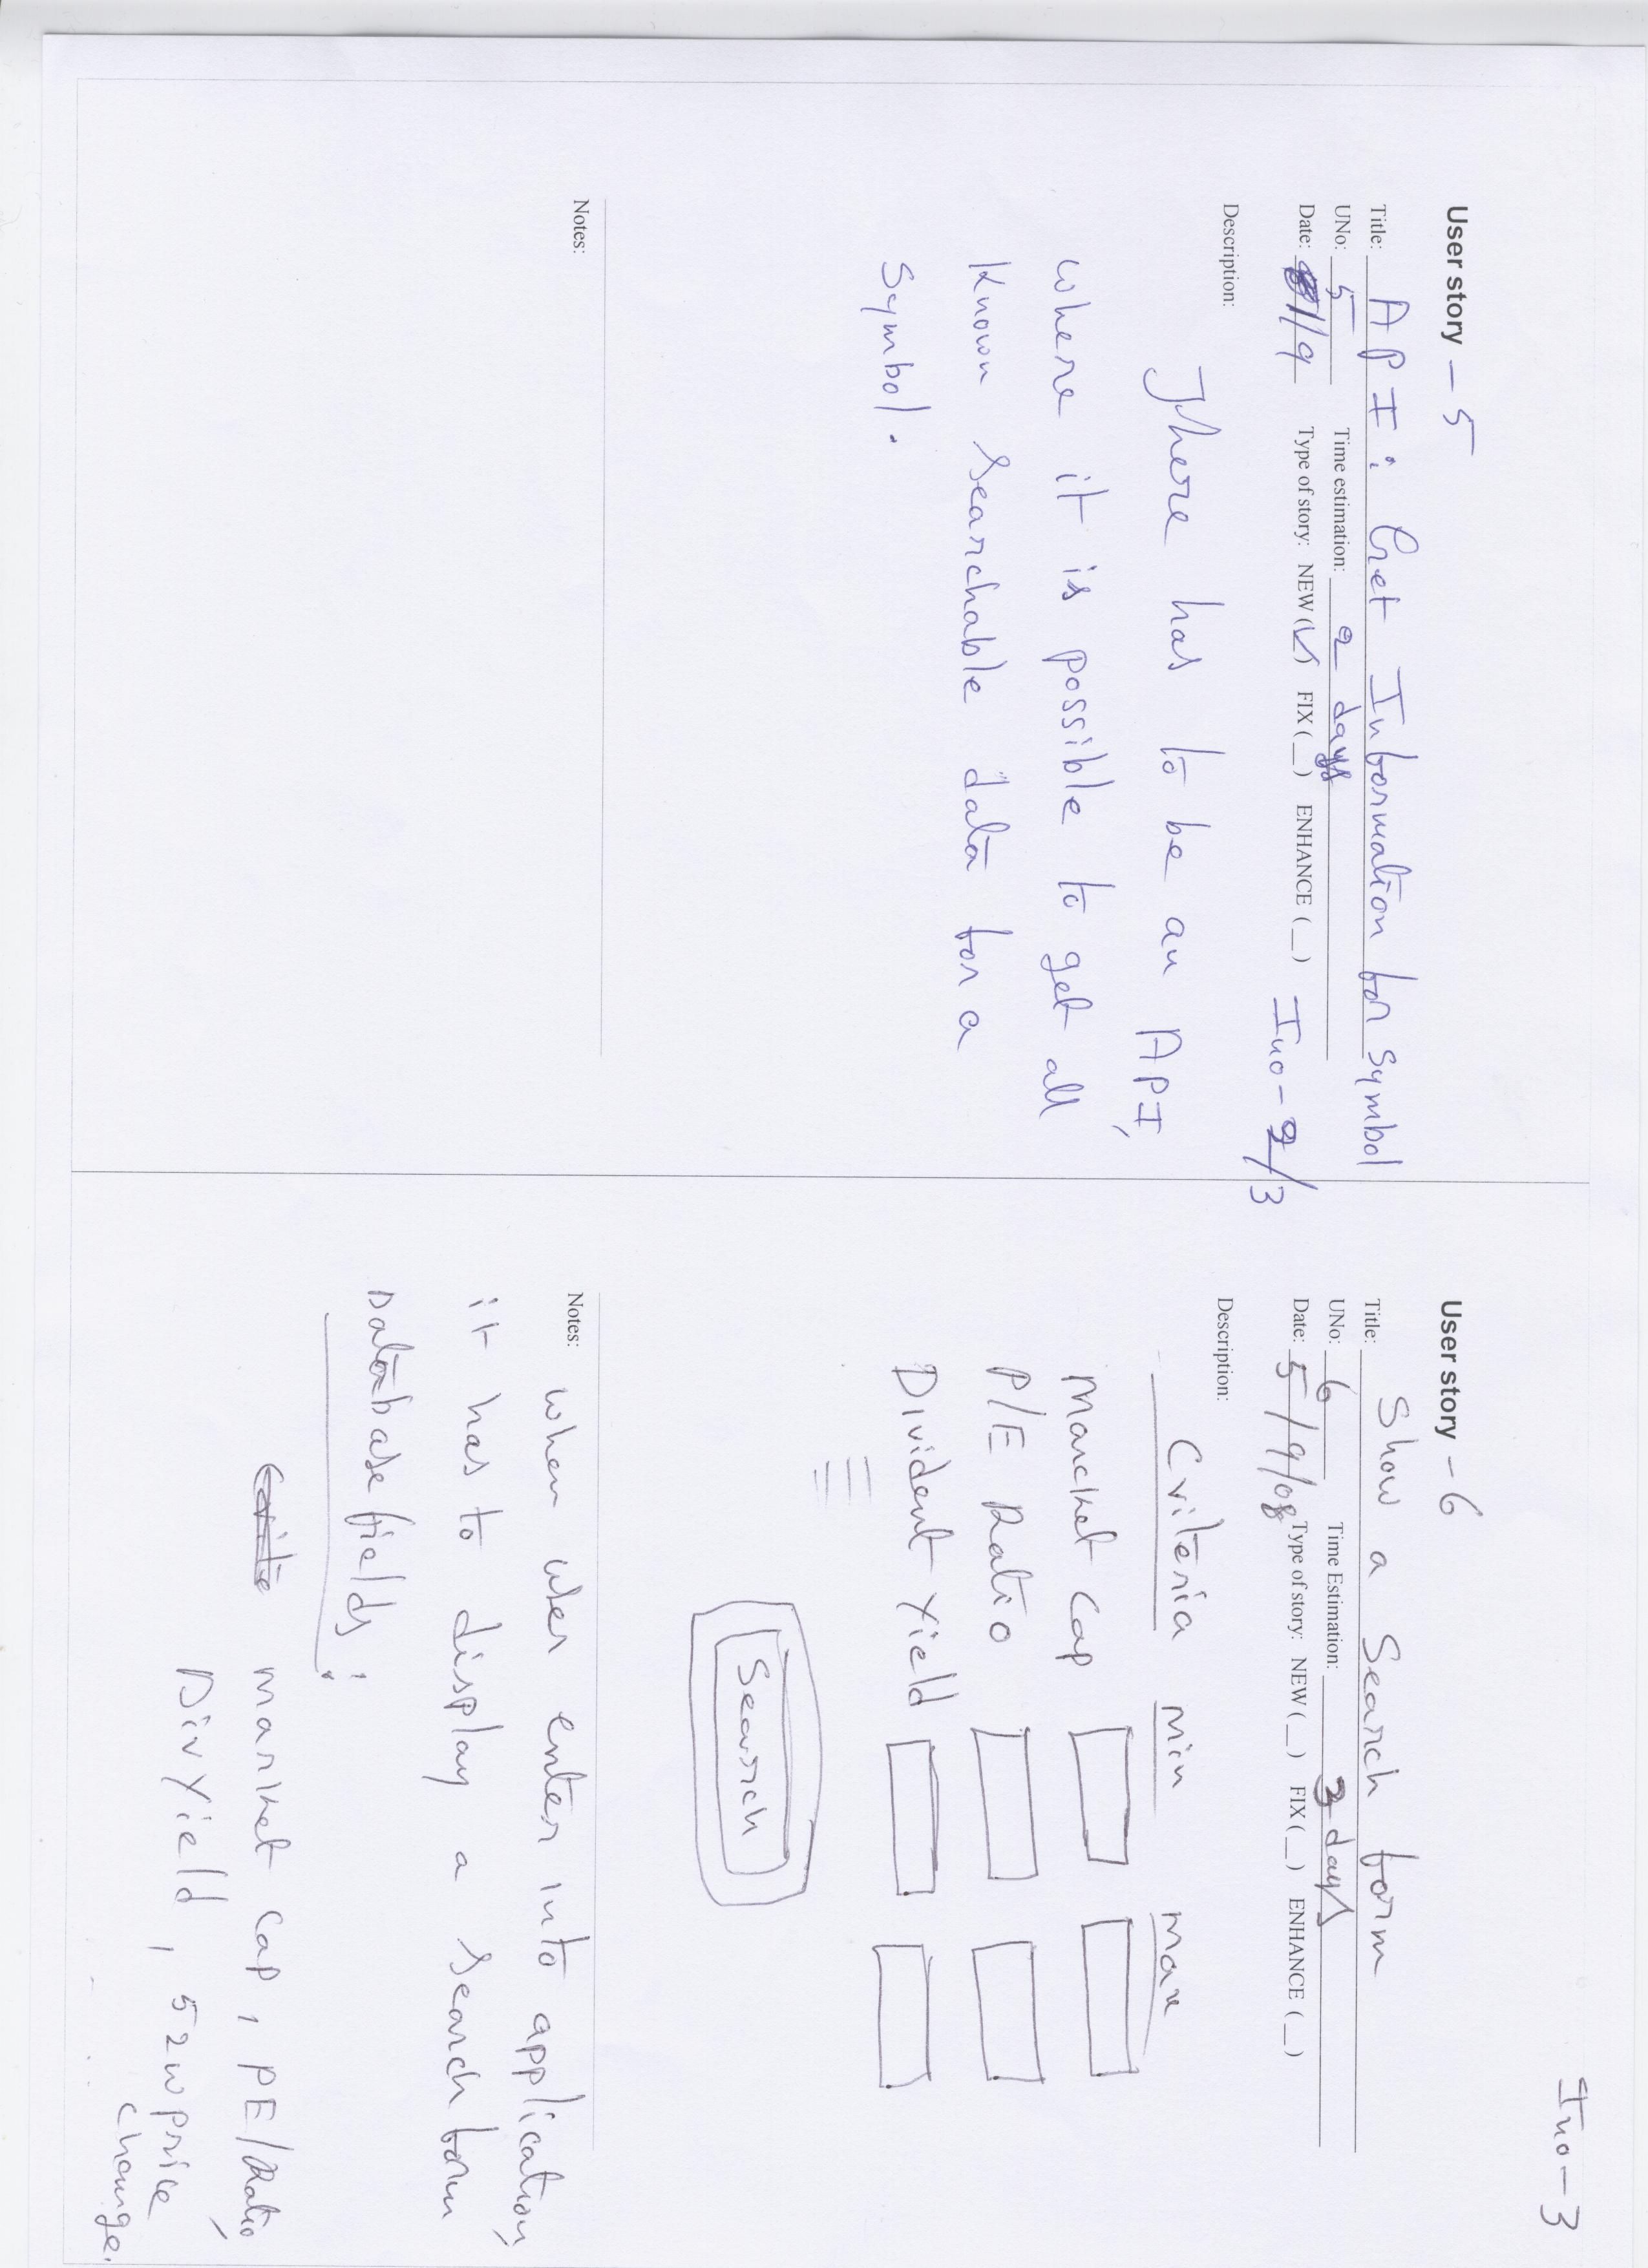 User story - 5
Title: API: Get Information for Symbol
UNo: 5 Time estimation: 2 days
Date: /9 Type of story: NEW (✓) FIX (_) ENHANCE (_) Ino-2/3
Description:
There has to be an API,
where it is possible to get all
known searchable data for a
Symbol.
Notes:
Ino-3
User story - 6
Title: Show a Search form
UNo: 6 Time Estimation: 3 days
Date: 5/9/08 Type of story: NEW (_) FIX (_) ENHANCE (_)
Description:
Criteria min max
Market Cap
P/E Ratio
Divident Yield
Search
Notes:
when user enter into application,
it has to display a search form
Database fields:
market cap, PE/Ratio,
Div Yield, 52w price
change.